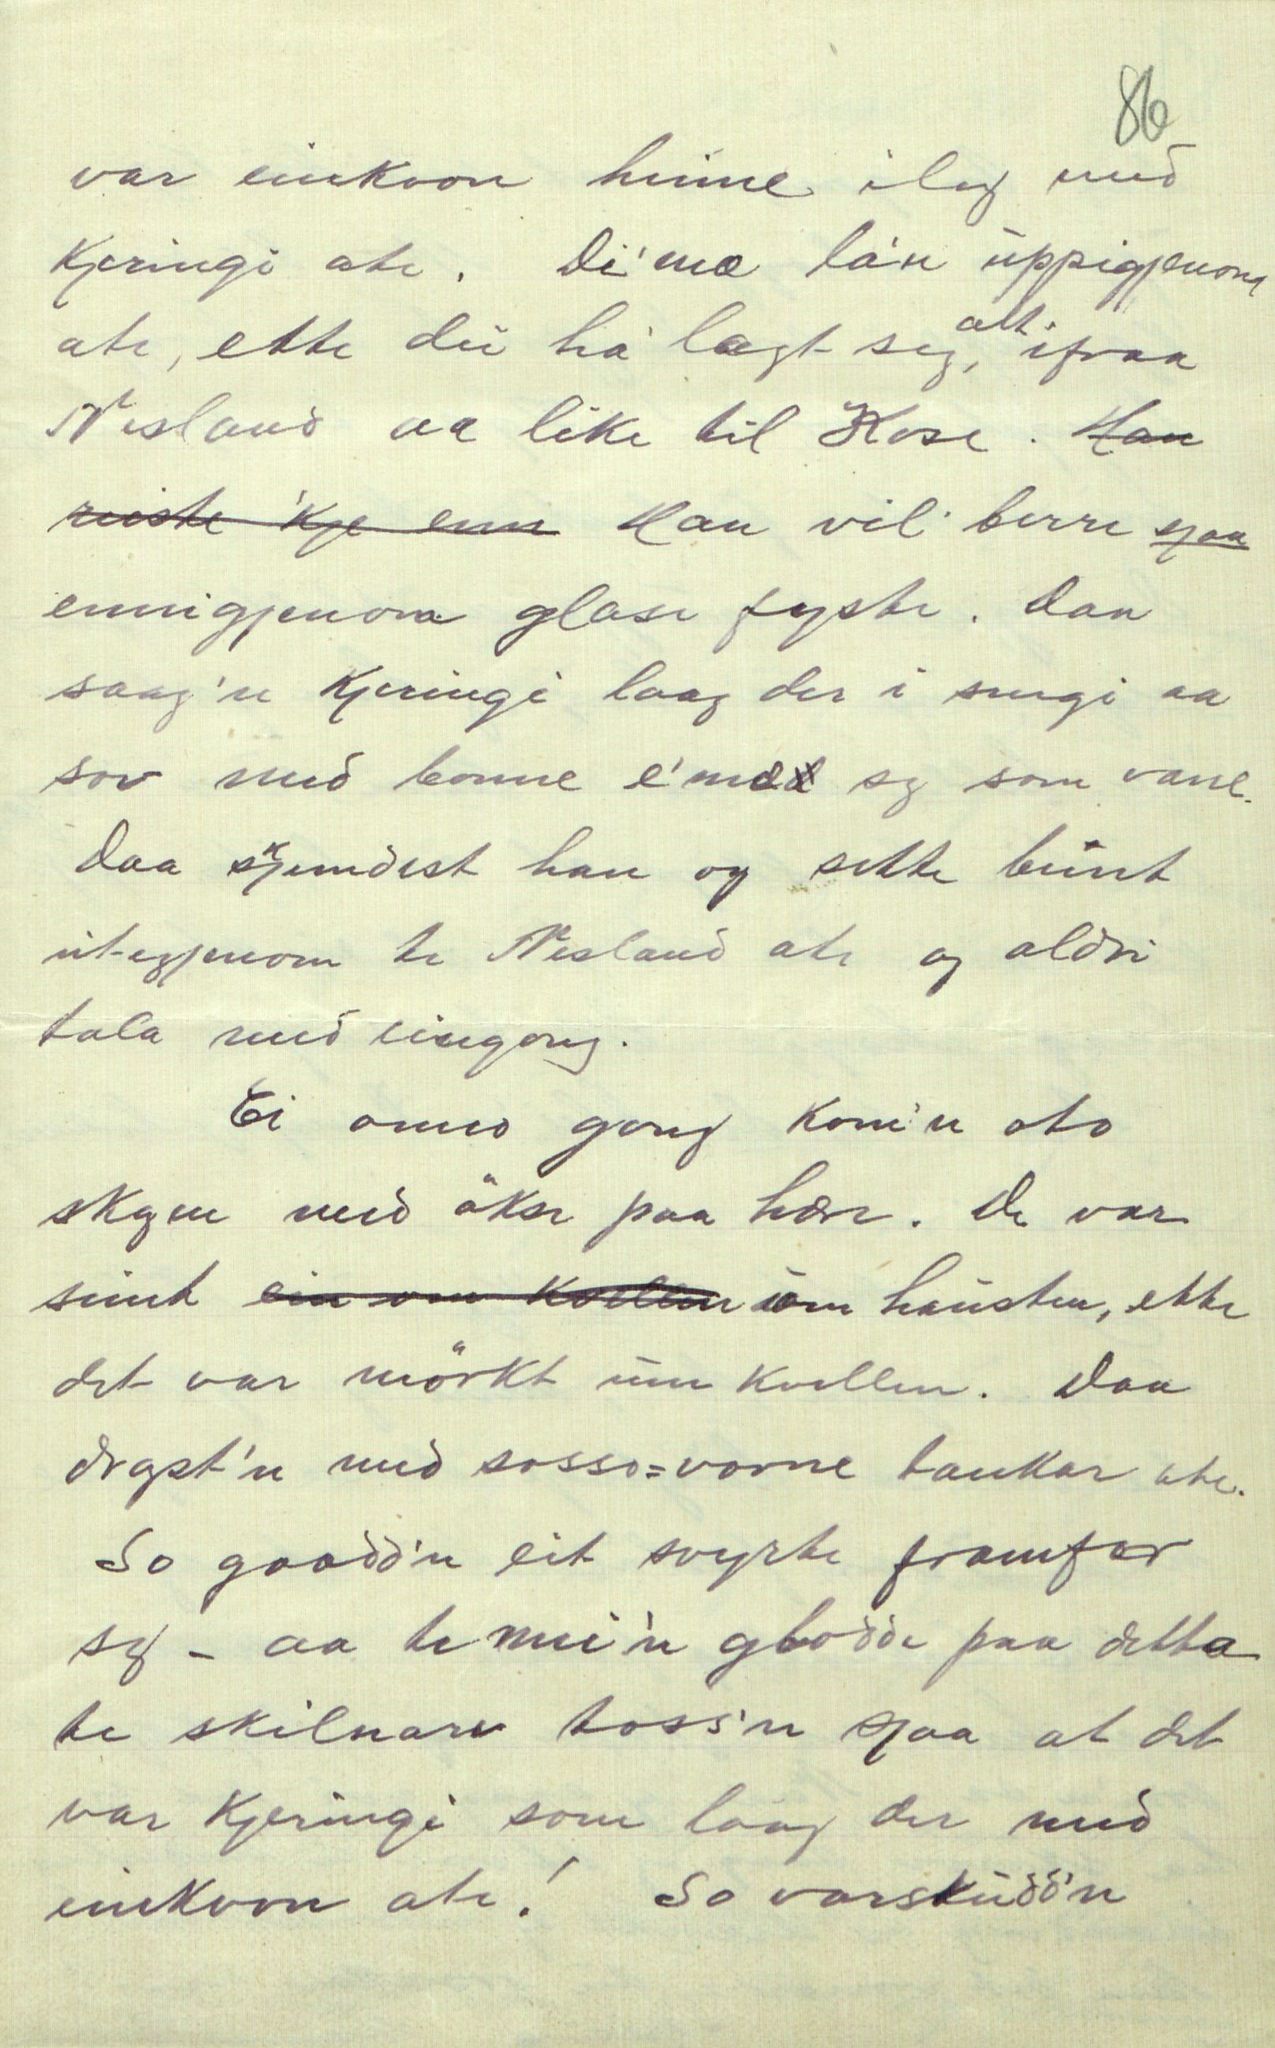 86
var einkvon hinne ilag með
Kjeringi ate. Di'mæ la'n uppigjenom
ate, ette dei ha' lagt seg, alt ifraa
Nesland aa like til Kose. Han
reiste 'kje enn Han vil' berre sjaa
ennigjenom glase fyste. Daa
saag'n Kjeringi laag der i sengi aa
sov með bonne e'mæ seg som vane.
Daa skjemdest han og sette beint
ut-egjenom te Nesland ate og aldri
tala með eingong.
Ei onno gong kom'n ato
skogen með økse paa hære. De var
seint ein om kvellen um hausten, ette
det var mörkt um kvellen. Daa
drogst'n með sosso=vorne tankar ate.
So gaadd'n eit svyrte framfor
seg – aa te mei'n gloðde paa detta
te skilnare toss'n sjaa at det
var Kjeringi som laag der með
einkvon ate! So varskudd'n